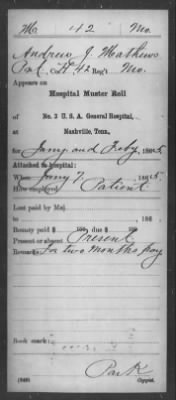 M 42 Mo.
Andrew J. Mathews
Pvt., Co. H, 42 Reg't Mo.
Appears on
Hospital Muster Roll
of
No. 2 U. S. A. General Hospital,
at
Nashville, Tenn.,
for Jany and Feby, 1865
Attached to hospital:
When Jany 7, 1865
How employed Patient
Last paid by Maj.
to , 186 .
Bounty paid $ 100 due $ 100
Present or absent Present
Remarks: For two months pay
Book mark:
Park
(248) Copyist.